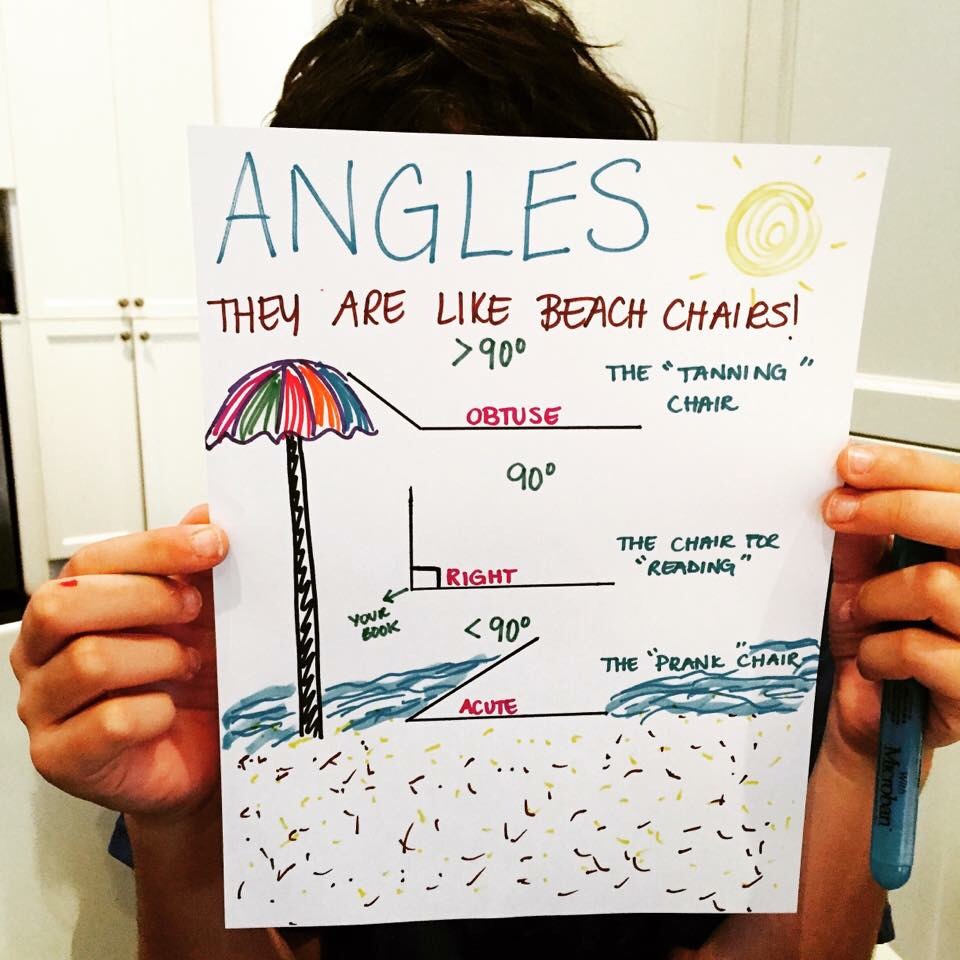 ANGLES
THEY ARE LIKE BEACH CHAIRS!
>90°
THE "TANNING"
CHAIR
OBTUSE
90°
THE CHAIR FOR
"READING"
RIGHT
YOUR
BOOK
<90°
THE "PRANK" CHAIR
ACUTE
With
Microban